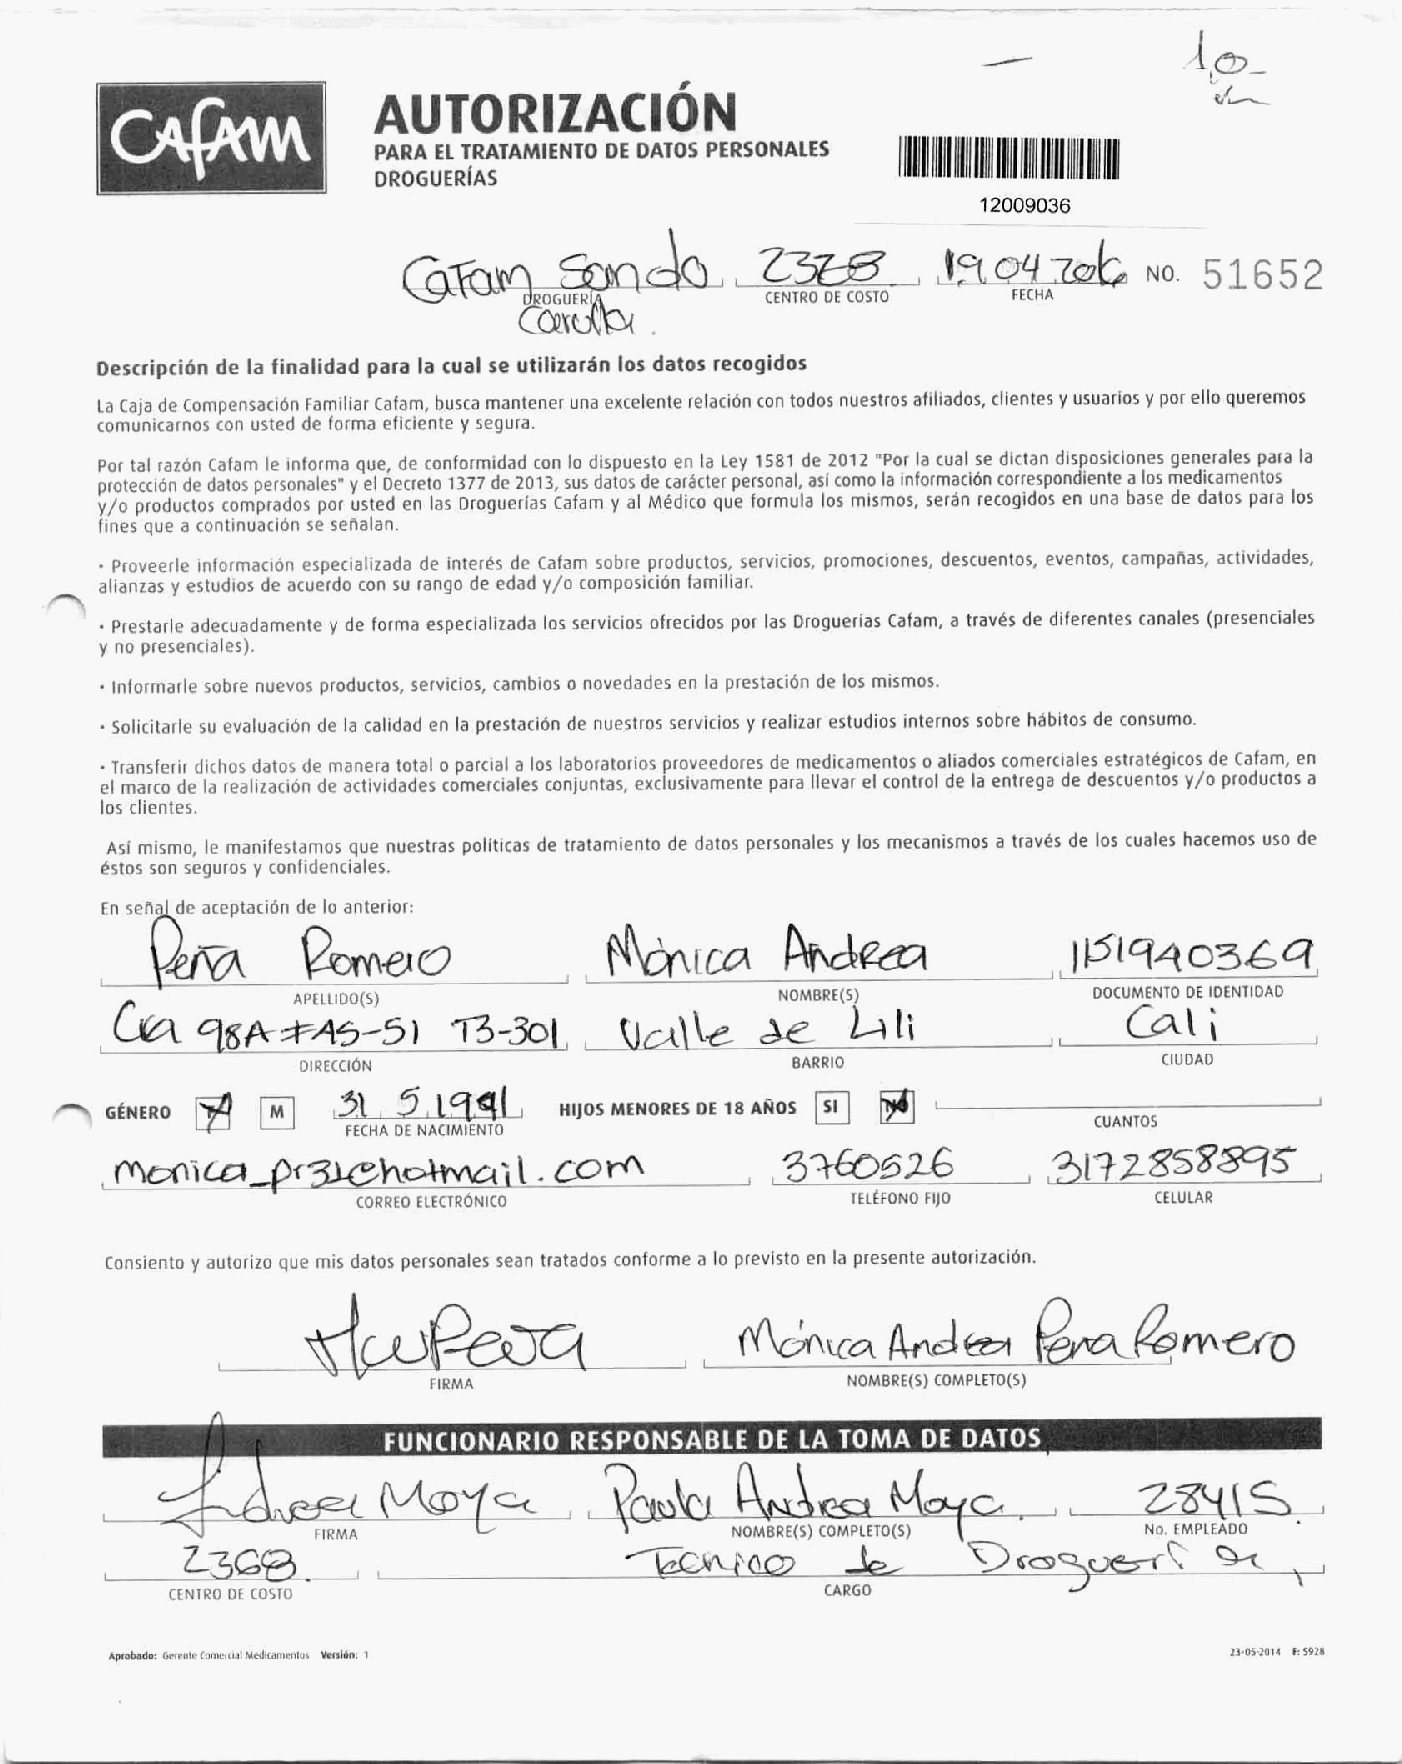 10
CAFAM
AUTORIZACIÓN
PARA EL TRATAMIENTO DE DATOS PERSONALES
DROGUERÍAS
12009036
Cafam 
DROGUERÍA
CENTRO DE COSTO
19 04
FECHA
NO. 51652
Descripción de la finalidad para la cual se utilizarán los datos recogidos
La Caja de Compensación Familiar Cafam, busca mantener una excelente relación con todos nuestros afiliados, clientes y usuarios y por ello queremos
comunicarnos con usted de forma eficiente y segura.
Por tal razón Cafam le informa que, de conformidad con lo dispuesto en la Ley 1581 de 2012 "Por la cual se dictan disposiciones generales para la
protección de datos personales" y el Decreto 1377 de 2013, sus datos de carácter personal, así como la información correspondiente a los medicamentos
y/o productos comprados por usted en las Droguerías Cafam y al Médico que formula los mismos, serán recogidos en una base de datos para los
fines que a continuación se señalan.
· Proveerle información especializada de interés de Cafam sobre productos, servicios, promociones, descuentos, eventos, campañas, actividades,
alianzas y estudios de acuerdo con su rango de edad y/o composición familiar.
· Prestarle adecuadamente y de forma especializada los servicios ofrecidos por las Droguerías Cafam, a través de diferentes canales (presenciales
y no presenciales).
· Informarle sobre nuevos productos, servicios, cambios o novedades en la prestación de los mismos.
· Solicitarle su evaluación de la calidad en la prestación de nuestros servicios y realizar estudios internos sobre hábitos de consumo.
· Transferir dichos datos de manera total o parcial a los laboratorios proveedores de medicamentos o aliados comerciales estratégicos de Cafam, en
el marco de la realización de actividades comerciales conjuntas, exclusivamente para llevar el control de la entrega de descuentos y/o productos a
los clientes.
Así mismo, le manifestamos que nuestras políticas de tratamiento de datos personales y los mecanismos a través de los cuales hacemos uso de
éstos son seguros y confidenciales.
En señal de aceptación de lo anterior:
Peña Romero Mónica Andrea 1151940369
APELLIDO(S) NOMBRE(S) DOCUMENTO DE IDENTIDAD
Cra 98A #45-51 T3-301 Valle de Lili Cali
DIRECCIÓN BARRIO CIUDAD
GÉNERO M 31 5 1991 HIJOS MENORES DE 18 AÑOS SI
FECHA DE NACIMIENTO CUANTOS
monica_pr31@hotmail.com 3760526 3172858895
CORREO ELECTRÓNICO TELÉFONO FIJO CELULAR
Consiento y autorizo que mis datos personales sean tratados conforme a lo previsto en la presente autorización.
Mónica Andrea Peña Romero
FIRMA NOMBRE(S) COMPLETO(S)
FUNCIONARIO RESPONSABLE DE LA TOMA DE DATOS
Andrea Moya Paula Andrea Moya 28415
FIRMA NOMBRE(S) COMPLETO(S) No. EMPLEADO
2368 Tecnico de Drogueri
CENTRO DE COSTO CARGO
Aprobado: Gerente Comercial Medicamentos Versión: 1 23-05-2014 F: 5928